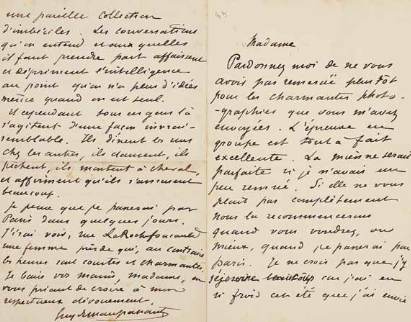 Madame
Pardonnez moi de ne vous
avoir pas remercié plus tôt
pour les charmantes photo-
-graphies que vous m'avez
envoyées. L'épreuve en
groupe est tout à fait
excellente. La mienne serait
parfaite si je n'avais un
peu remué. Si elle ne vous
plaît pas complètement
nous la recommencerons
quand vous voudrez, ou
mieux, quand je passerai par
Paris. Je ne crois pas que j'y
séjourne beaucoup car j'ai eu
si froid cet été que j'ai envie
une pareille collection
d'imbéciles. Les conversations
qu'on entend et auxquelles
il faut prendre part affaissent
et dépriment l'intelligence
au point qu'on n'a plus d'idées
même quand on est seul.
Et cependant tous ces gens là
s'agitent d'une façon invrai-
semblable. Ils dînent les uns
chez les autres, ils dansent, ils
pêchent, ils montent à cheval,
et affirment qu'ils s'amusent
beaucoup.
Je pense que je passerai par
Paris dans quelques jours.
J'irai voir, rue La Rochefoucauld
une femme près de qui, au contraire
les heures sont courtes et charmantes.
Je baise vos mains, madame, en
vous priant de croire à mon
respectueux dévouement.
Guy de Maupassant